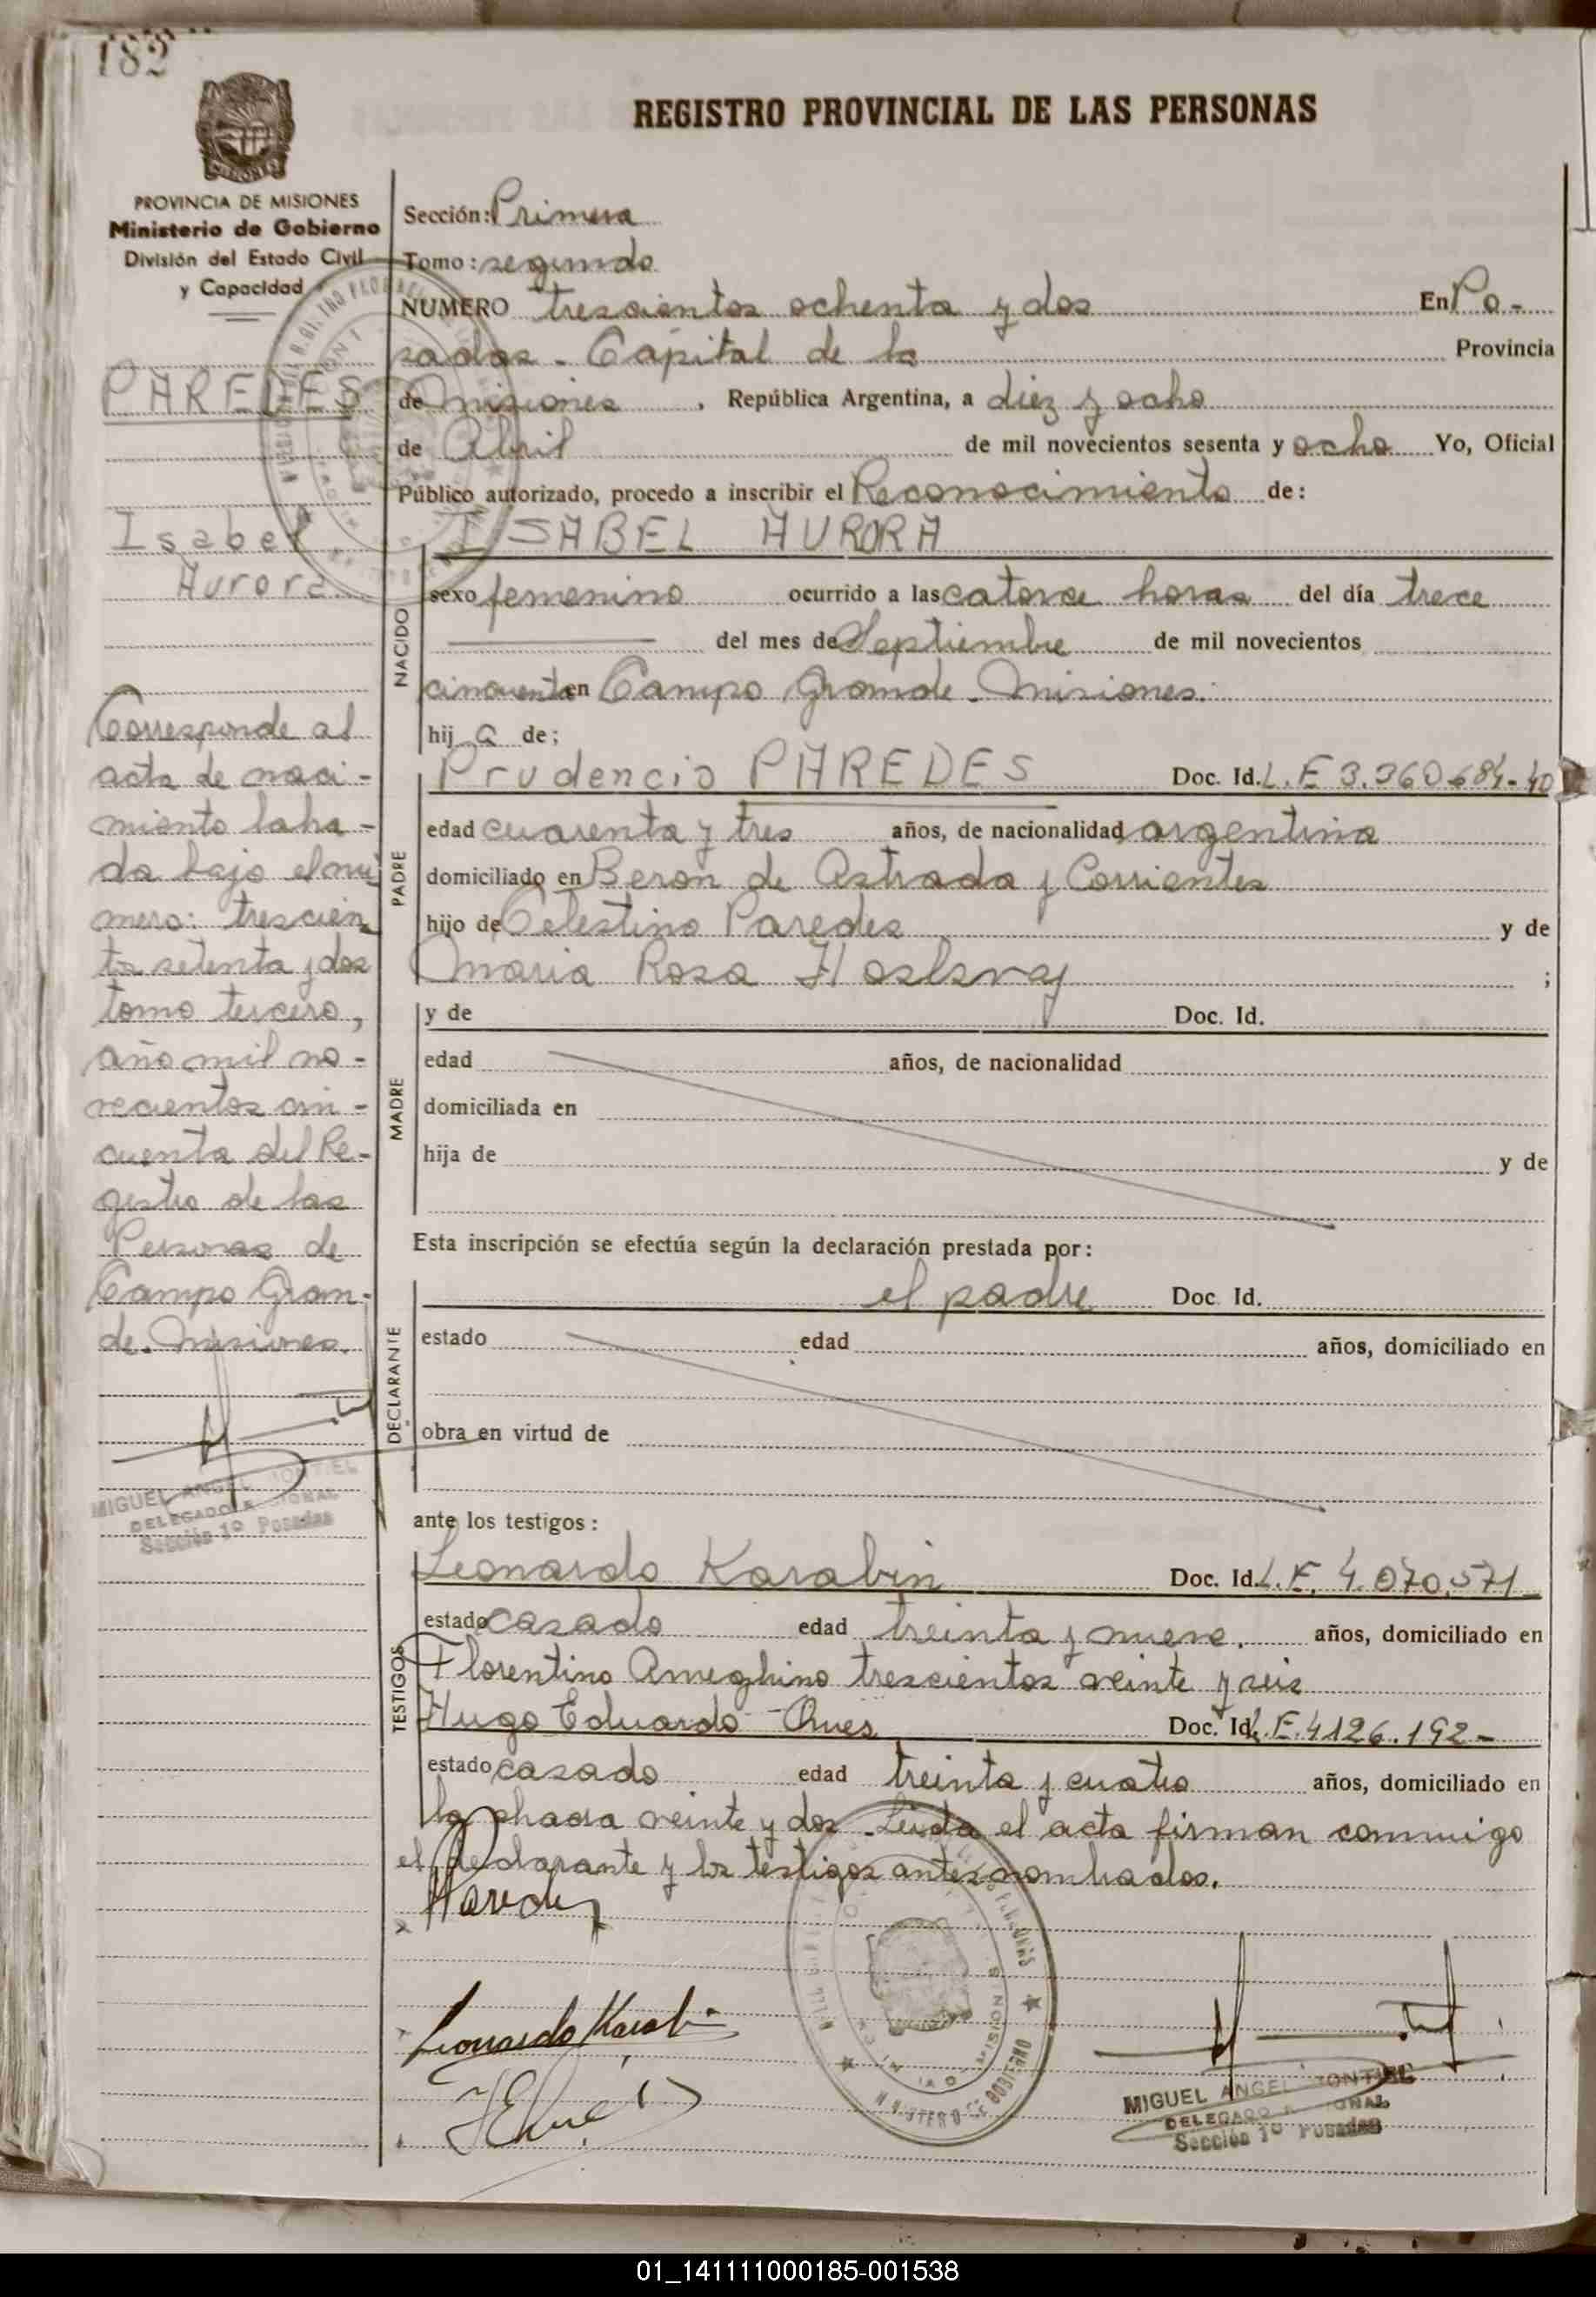 182
REGISTRO PROVINCIAL DE LAS PERSONAS
PROVINCIA DE MISIONES
Ministerio de Gobierno
División del Estado Civil
y Capacidad
PAREDES
Isabel
Aurora
Corresponde al
acta de naci-
miento labra-
da bajo el nú
mero: trescien
tos setenta y dos
tomo tercero,
año mil no-
vecientos cin-
cuenta del Re-
gistro de las
Personas de
Campo Gran-
de. Misiones.
MIGUEL ANGEL MONTIEL
DELEGADO
Sección 1º Posadas
Sección: Primera
Tomo: segundo
NUMERO trescientos ochenta y dos En Po-
sadas - Capital de la Provincia
de Misiones, República Argentina, a diez y ocho
de Abril de mil novecientos sesenta y ocho Yo, Oficial
Público autorizado, procedo a inscribir el Reconocimiento de:
ISABEL AURORA
NACIDO
sexo femenino ocurrido a las catorce horas del día trece
del mes de Septiembre de mil novecientos
cincuenta en Campo Grande - Misiones.
hij a de;
PADRE
Prudencio PAREDES Doc. Id. L. E 3.360.684-40
edad cuarenta y tres años, de nacionalidad argentina
domiciliado en Beron de Astrada y Corrientes
hijo de Celestino Paredes y de
Maria Rosa ;
MADRE
y de Doc. Id.
edad años, de nacionalidad
domiciliada en
hija de y de
Esta inscripción se efectúa según la declaración prestada por:
DECLARANTE
el padre Doc. Id.
estado edad años, domiciliado en
obra en virtud de
ante los testigos:
TESTIGOS
Leonardo Karabin Doc. Id. L. E. 4.070.571
estado casado edad treinta y nueve. años, domiciliado en
Florentino Ameghino trescientos veinte y seis
Hugo Eduardo Doc. Id. L. E. 4126.192-
estado casado edad treinta y cuatro años, domiciliado en
la chacra veinte y dos - Leida el acta firman conmigo
el declarante y los testigos antes nombrados.
Paredes
Leonardo Karabin
MIGUEL ANGEL MONTIEL
DELEGADO
Sección 1º Posadas
01_141111000185-001538